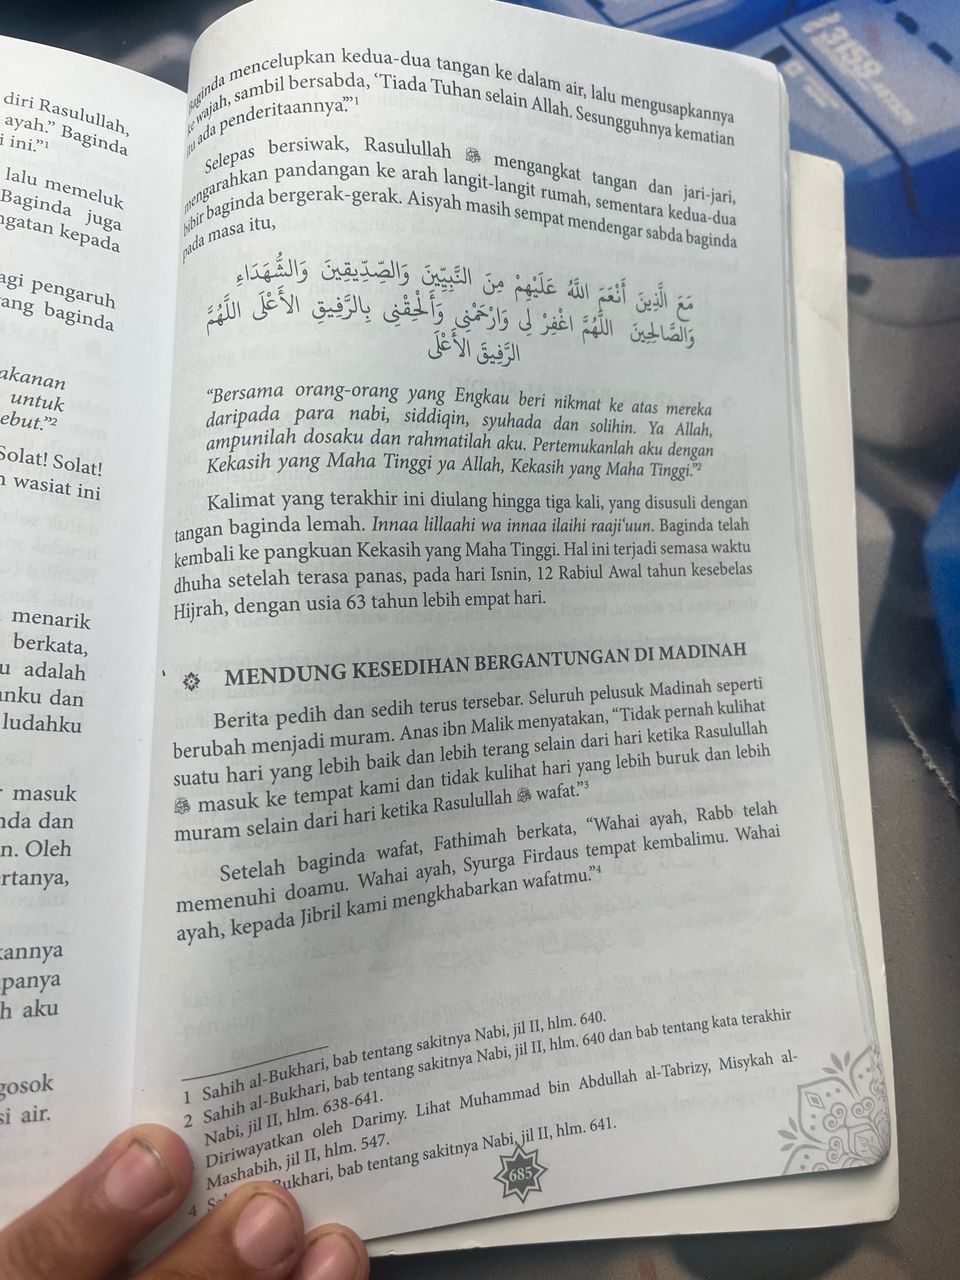 diri Rasulullah,
ayah.” Baginda
i ini.”1
lalu memeluk
Baginda juga
ngatan kepada
agi pengaruh
yang baginda
akanan
untuk
ebut.”2
Solat! Solat!
n wasiat ini
menarik
berkata,
u adalah
anku dan
ludahku
masuk
nda dan
n. Oleh
rtanya,
kannya
panya
h aku
gosok
si air.
Baginda mencelupkan kedua-dua tangan ke dalam air, lalu mengusapkannya
ke wajah, sambil bersabda, ‘Tiada Tuhan selain Allah. Sesungguhnya kematian
itu ada penderitaannya.’”1
Selepas bersiwak, Rasulullah ﷺ mengangkat tangan dan jari-jari,
mengarahkan pandangan ke arah langit-langit rumah, sementara kedua-dua
bibir baginda bergerak-gerak. Aisyah masih sempat mendengar sabda baginda
pada masa itu,
مَعَ الَّذِينَ أَنْعَمَ اللَّهُ عَلَيْهِمْ مِنَ النَّبِيِّينَ وَالصِّدِّيقِينَ وَالشُّهَدَاءِ
وَالصَّالِحِينَ اللَّهُمَّ اغْفِرْ لِي وَارْحَمْنِي وَأَلْحِقْنِي بِالرَّفِيقِ الأَعْلَى اللَّهُمَّ
الرَّفِيقَ الأَعْلَى
“Bersama orang-orang yang Engkau beri nikmat ke atas mereka
daripada para nabi, siddiqin, syuhada dan solihin. Ya Allah,
ampunilah dosaku dan rahmatilah aku. Pertemukanlah aku dengan
Kekasih yang Maha Tinggi ya Allah, Kekasih yang Maha Tinggi.”2
Kalimat yang terakhir ini diulang hingga tiga kali, yang disusuli dengan
tangan baginda lemah. Innaa lillaahi wa innaa ilaihi raaji‘uun. Baginda telah
kembali ke pangkuan Kekasih yang Maha Tinggi. Hal ini terjadi semasa waktu
dhuha setelah terasa panas, pada hari Isnin, 12 Rabiul Awal tahun kesebelas
Hijrah, dengan usia 63 tahun lebih empat hari.
MENDUNG KESEDIHAN BERGANTUNGAN DI MADINAH
Berita pedih dan sedih terus tersebar. Seluruh pelusuk Madinah seperti
berubah menjadi muram. Anas ibn Malik menyatakan, “Tidak pernah kulihat
suatu hari yang lebih baik dan lebih terang selain dari hari ketika Rasulullah
ﷺ masuk ke tempat kami dan tidak kulihat hari yang lebih buruk dan lebih
muram selain dari hari ketika Rasulullah ﷺ wafat.”3
Setelah baginda wafat, Fathimah berkata, “Wahai ayah, Rabb telah
memenuhi doamu. Wahai ayah, Syurga Firdaus tempat kembalimu. Wahai
ayah, kepada Jibril kami mengkhabarkan wafatmu.”4
1 Sahih al-Bukhari, bab tentang sakitnya Nabi, jil II, hlm. 640.
2 Sahih al-Bukhari, bab tentang sakitnya Nabi, jil II, hlm. 640 dan bab tentang kata terakhir
Nabi, jil II, hlm. 638-641.
Diriwayatkan oleh Darimy. Lihat Muhammad bin Abdullah al-Tabrizy, Misykah al-
Mashabih, jil II, hlm. 547.
4 Bukhari, bab tentang sakitnya Nabi, jil II, hlm. 641.
685
3159